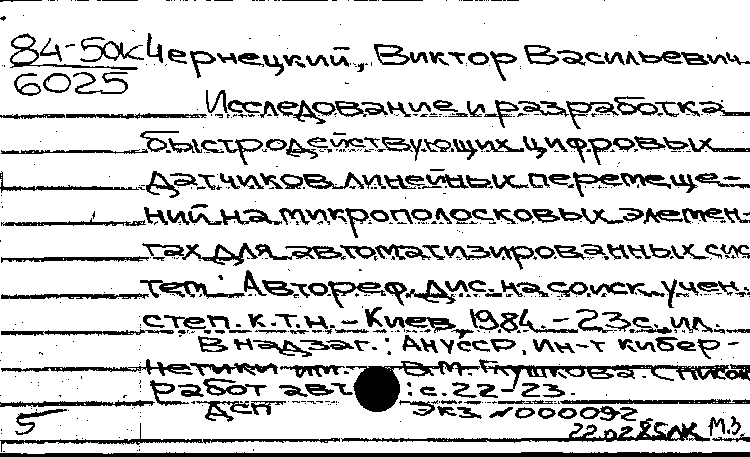 84-50к Чернецкий, Виктор Васильевич.
6025
Исследование и разработка
быстродействующих цифровых
датчиков линейных перемеще-
ний на микрополосковых элемен-
тах для автоматизированных сис
тем: Автореф. дис. на соиск. учен.
степ. к.т.н. - Киев, 1984. - 23с. ил.
В надзаг.: АН УССР, ин-т кибер-
нетики им. В.М. Глушкова. Список
работ авт. : с. 22-23.
ДСП экз. №000092
5